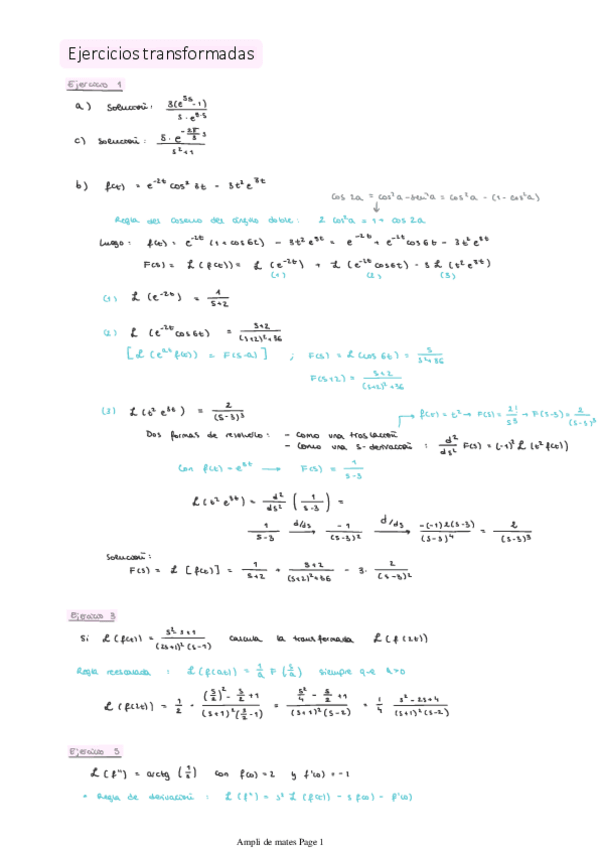 Ejercicios transformadas
Ejercicio 1
a) Solución: 3(e^{5s}-1) / s·e^{8·s}
c) Solución: s·e^{-2π/3 s} / s²+1
b) f(t) = e^{-2t} cos² 3t - 3t² e^{3t}
cos 2a = cos²a - sen²a = cos²a - (1 - cos²a)
Regla del coseno del ángulo doble: 2 cos²a = 1 + cos 2a
Luego: f(t) = e^{-2t} (1 + cos 6t) - 3t² e^{3t} = e^{-2t} + e^{-2t} cos 6t - 3t² e^{3t}
F(s) = L (f(t)) = L (e^{-2t}) + L (e^{-2t} cos 6t) - 3 L (t² e^{3t})
(1) (2) (3)
(1) L (e^{-2t}) = 1 / s+2
(2) L (e^{-2t} cos 6t) = s+2 / (s+2)²+36
[L (e^{at} f(t)) = F(s-a)] ; F(s) = L (cos 6t) = s / s²+36
F(s+2) = s+2 / (s+2)²+36
(3) L (t² e^{3t}) = 2 / (s-3)³
f(t) = t² → F(s) = 2! / s³ → F(s-3) = 2 / (s-3)³
Dos formas de resolverlo: - Como una traslación
- Como una s-derivación : d²/ds² F(s) = (-1)² L (t² f(t))
Con f(t) = e^{3t} → F(s) = 1 / s-3
L (t² e^{3t}) = d²/ds² (1 / s-3) =
1 / s-3 d/ds → -1 / (s-3)² d/ds → -(-1)2(s-3) / (s-3)⁴ = 2 / (s-3)³
Solución:
F(s) = L [f(t)] = 1 / s+2 + s+2 / (s+2)²+36 - 3· 2 / (s-3)²
Ejercicio 3
Si L (f(t)) = s²-s+1 / (2s+1)² (s-1) calcula la transformada L (f(2t))
Regla reescalada : L (f(at)) = 1/a F (s/a) siempre que a>0
L (f(2t)) = 1/2 · (s/2)² - s/2 + 1 / (s+1)² (s/2 - 1) = s²/4 - s/2 + 1 / (s+1)² (s-2) = 1/4 s²-2s+4 / (s+1)² (s-2)
Ejercicio 5
L (f'') = arctg (1/s) con f(0) = 2 y f'(0) = -1
• Regla de derivación : L (f'') = s² L (f(t)) - s f(0) - f'(0)
Ampli de mates Page 1